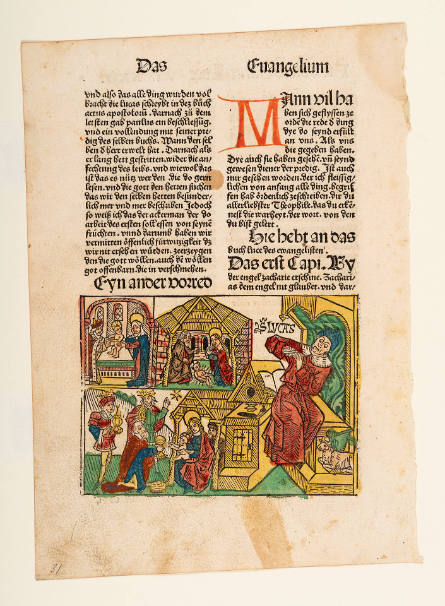 Das Euangelium
vnd also das alle ding wurden vol
bracht die lucas schreybt in dez bůch
actus apostolorum. darnach zů dem
letsten gab paulus ein beschliessūg.
vnd ein vollendung mit seiner pre
dig des selben buchs. Wann der sel
ben d herr erwelt hat. Darnach als
er lang hett gestritten. wider die an
fechtung des leibs. vnd wiewol das
ist das es nütz wer den die do gern
lesen. vnd die gott den herren sůchen
das wir den selben hetten besunder
lich mer vnd mer beschriben Jedoch
so weiß ich das der ackerman der do
arbeit des ersten soll essen von seynē
früchten. vnnd darumb haben wir
vermitten öffenlich fürwitzigkeit dz
wir nit ersehen würden. zerzeygen
den die gott wöllen. auch de wöllen
got offenbarn. die in verschmehen.
Eyn ander vorred
MAnn vil ha
ben sich geflyssen ze
orde die rede d ding
dye do seynd erfült
an vns. Als vns
die gegeben haben.
Dye auch sie haben gesehē. vn̄ seynd
gewesen diener der predig. Ist auch
mir gesehen worden. der ich fleissig
lichen von anfang alle ding. begriff
fen hab ordenlich zeschreiben. die du
allerliebster Theophile. das du erkē
nest die warheyt. der wort. von den
du bist gelert.
Hie hebt an das
buch Luce des ewangelisten.
Das erst Capi. Wy
der engel zacharie erschine. Zachari
as dem engel nit glaubet. vnd dar-
S LUCAS
31